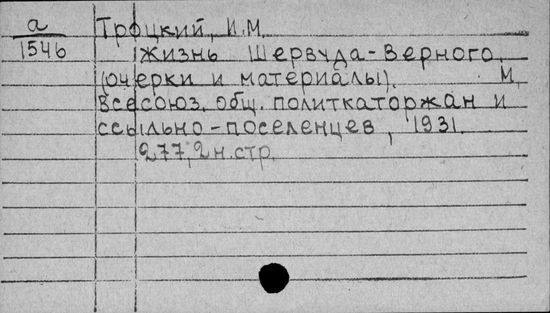 а
1546
Троцкий, И.М.
Жизнь Шервуда-Верного.
(очерки и материалы). М,
Всесоюз. общ. политкаторжан и
ссыльно-поселенцев, 1931.
277, 2 н.стр.